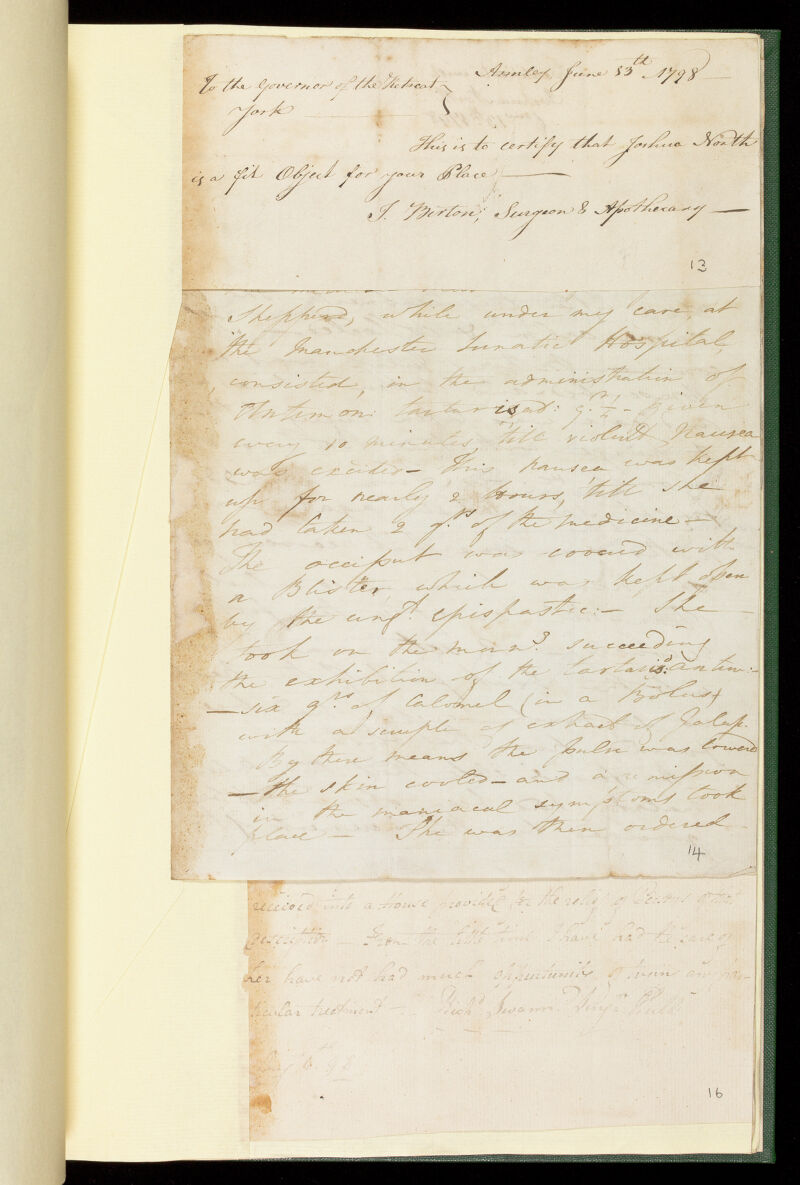 Armley June 13th 1798
To the Governor of the Retreat
York
This is to certify that Joshua North
is a fit Object for your Place
J. Birton, Surgeon & Apothecary
13
Shepherd, while under my care, at
the Manchester Lunatic Hospital,
consisted, in the administration of
Antimon: tartarisad: gr. 1/4 - given
every 10 minutes, 'till violent Nausea
was excited - This nausea was kept
up for nearly 2 Hours, 'till she
had taken 2 grs of the medicine -
The occiput was covered with
a Blister, which was kept open
by the ungt. epispastic: - She -
took on the morng succeeding
the exhibition of the tartarisd antim: -
- six grs of Calomel (in a Bolus)
with a scruple of extract of Jalap.
By these means the pulse was lowered
- the skin cooled - and a remission
in the maniacal symptoms took
place - She was then ordered
14
received into a House provided for the relief of Persons of this
description - From the little time I have had the care of
her have not had much opportunity of trying any par-
ticular treatment - Richd Swann Surgn
16